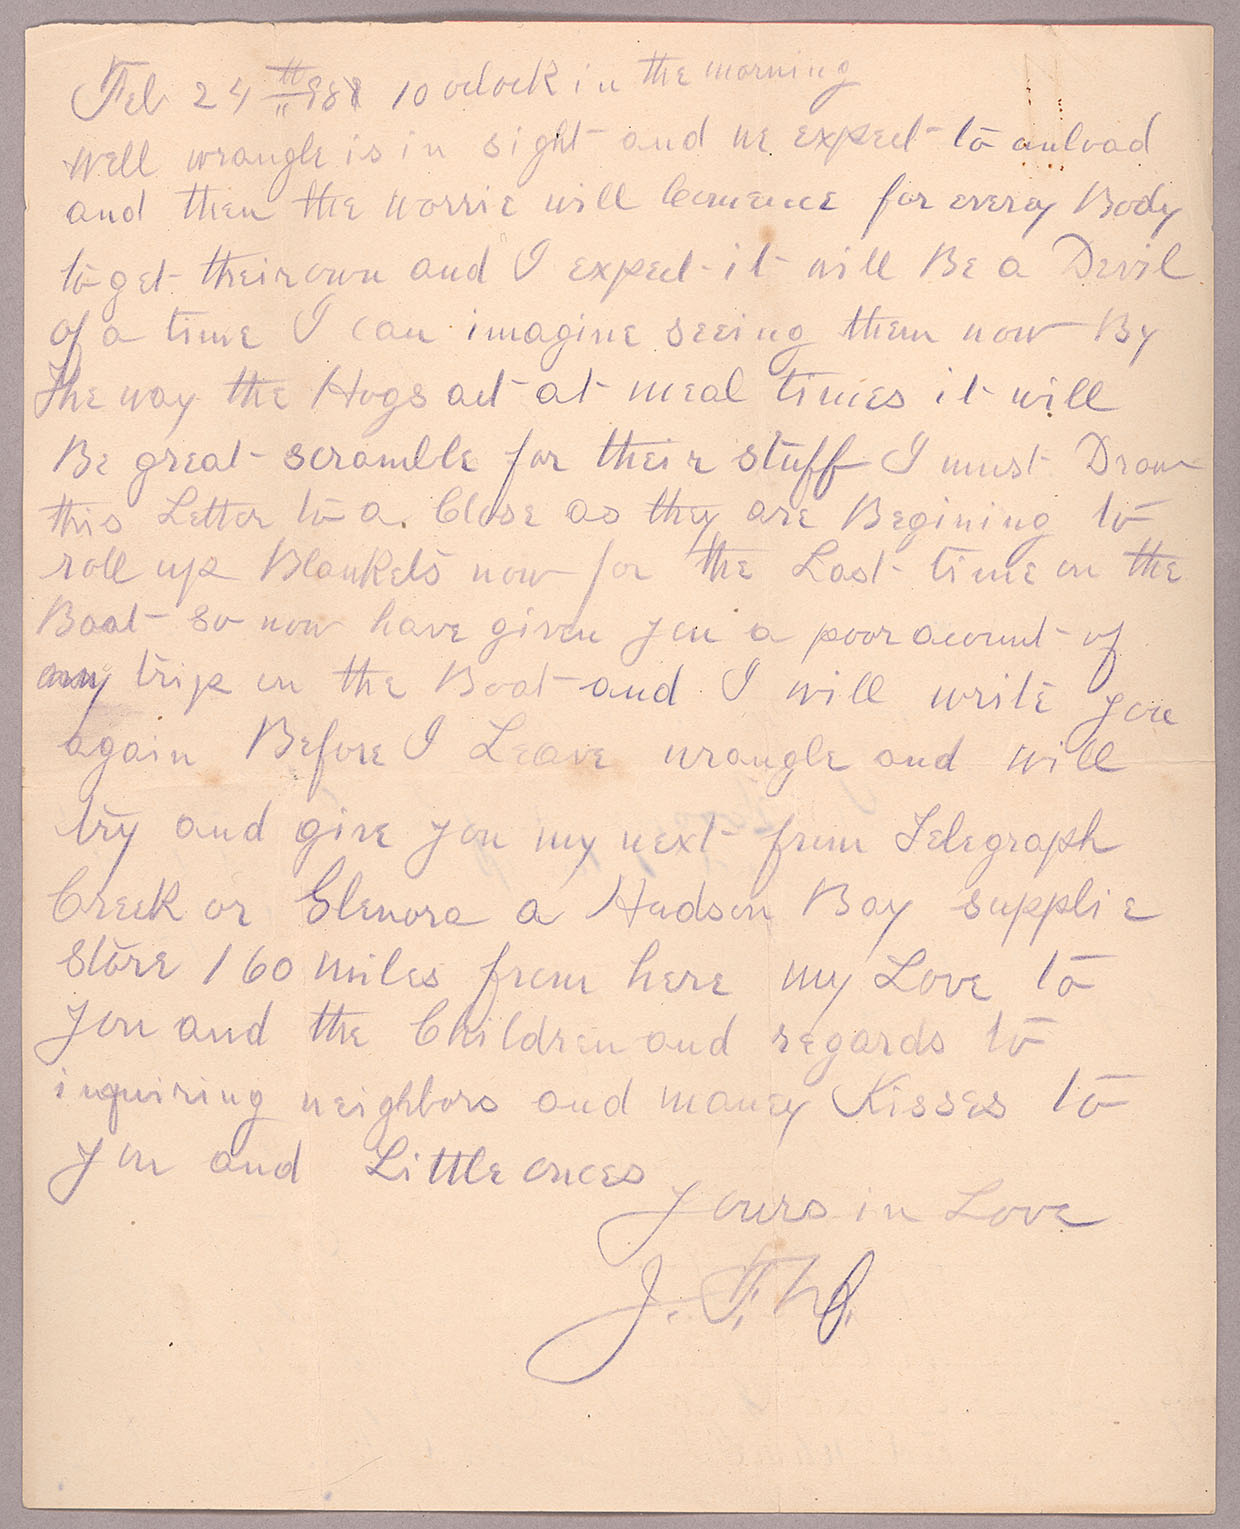 Feb 24th 98 10 oclock in the morning
Well wrangle is in sight and we expect to unload
and then the worrie will Comence for every Body
to get their own and I expect it will Be a Devil
of a time I can imagine seeing them now By
the way the Hogs act at meal times it will
Be great scramble for their stuff I must Draw
this Letter to a Close as they are Begining to
roll up Blankets now for the Last time on the
Boat so now have given you a poor acount of
my trip on the Boat and I will write you
again Before I Leave wrangle and will
try and give you my next from Telegraph
Creek or Glenora a Hudson Bay supplie
store 160 miles from here my Love to
you and the Children and regards to
inquiring neighbors and maney Kisses to
you and Little onces
yours in Love
J. F.